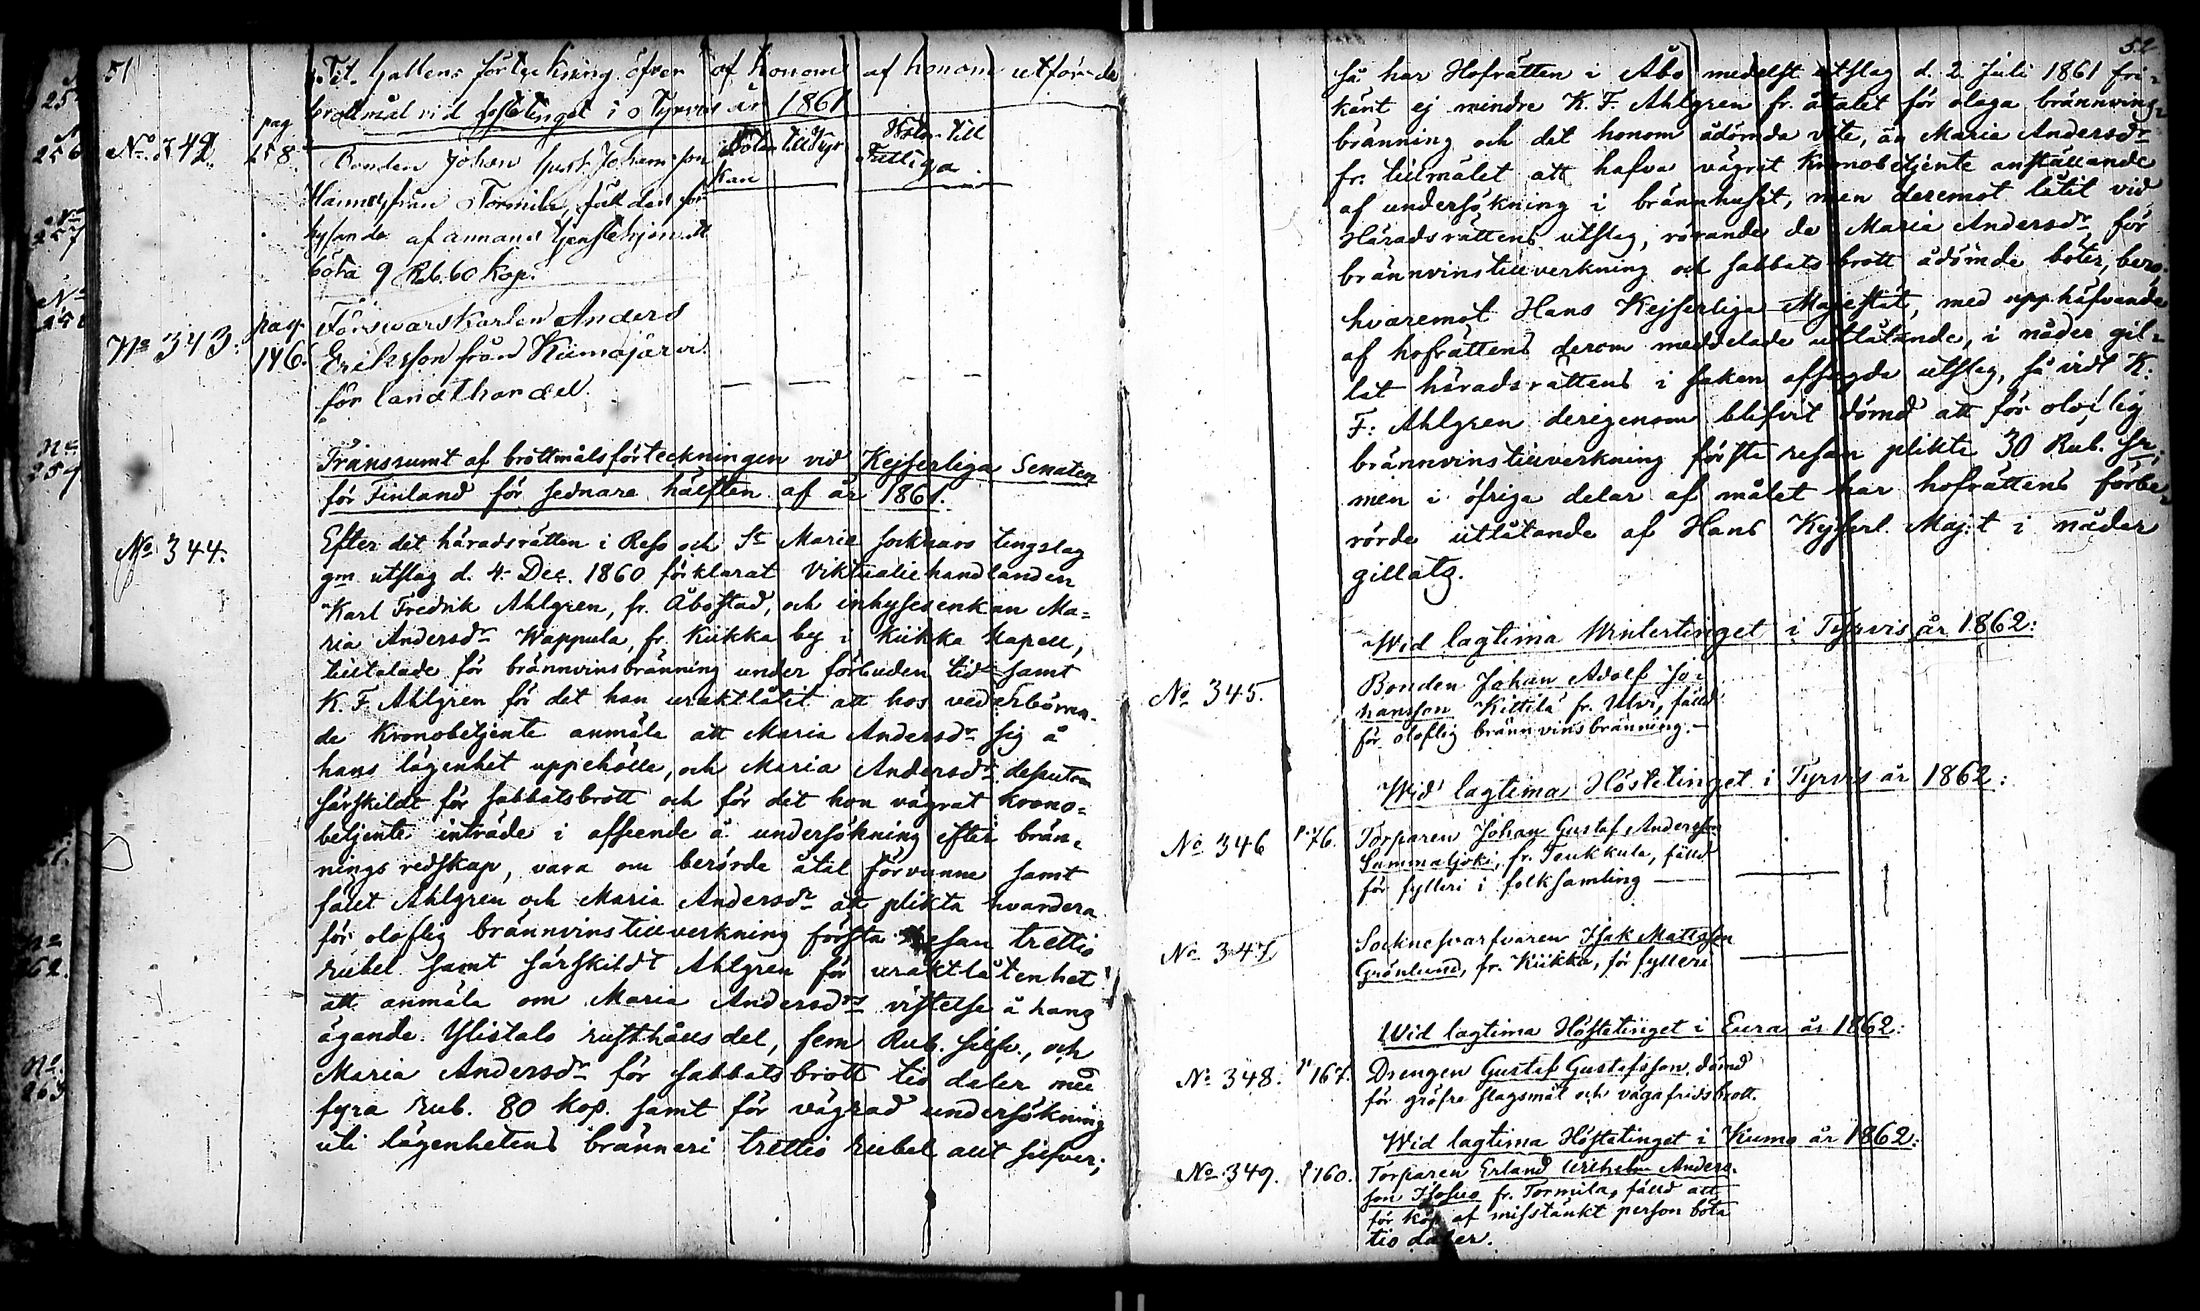 51
Tit. Gallens förteckning öfver af honom af honom utförde
brottmål vid hösttinget i Tyrvis år 1861
Böter till Kyr kan
Böter till Fattiga
No 342. pag 258. Bonden Johan Gust. Johansson
Hannus från Tormila, fäld den för
hysande af annans tjenstehjon att
böta 9 Rub. 60 kop.
No 343. pag. 146. Försvarskarlen Anders
Eriksson från Kiimajärvi
för landthandel.
Transsumt af brottmålsförteckningen vid Kejserliga Senaten
för Finland för sednare hälften af år 1861.
No 344. Efter det häradsrätten i Reso och St Marie socknars tingslag
gm utslag d. 4 Dec. 1860 förklarat Viktualiehandlanden
Karl Fredrik Ahlgren, fr. Åbo stad, och inhysesenkan Ma=
ria Andersdr Wappula, fr. Kiikka by i Kiikka kapell,
tilltalade för brännvinsbränning under förbuden tid samt
K. F. Ahlgren för det han uraktlåtit att hos vederböran-
de Kronobetjente anmäla att Maria Andersdr sig å
hans lägenhet uppehölle, och Maria Andersdr dessutom
särskildt för sabbatsbrott och för det hon vägrat Krono=
betjente inträde i afseende å undersökning efter brän-
nings redskap, vara om berörde åtal förvunne samt
fält Ahlgren och Maria Andersdr att plikta hvardera
för oloflig brännvinstillverkning första resan trettio
rubel samt särskildt Ahlgren för uraktlåtenhet
att anmäla om Maria Andersdrs vistelse å hans
ägande Ylistalo rusthålls del, fem Rub. silfv., och
Maria Andersdr för sabbatsbrott tio daler med
fyra rub. 80 kop. samt för vägrad undersökning
uti lägenhetens bränneri trettio rubel allt silfver;
52
så har Hofrätten i Åbo medelst utslag d. 2 Juli 1861 fri=
känt ej mindre K. F. Ahlgren fr. åtalet för olaga brännvins=
bränning och det honom ådömda vite, än Maria Andersdr
fr. tillmålet att hafva vägrat Kronobetjente anställande
af undersökning i brännhuset, men deremot låtit vid
Häradsrättens utslag, rörande de Maria Andersdr för
brännvinstillverkning och sabbatsbrott ådömde böter, bero
hvaremot Hans Kejserliga Majestät, med upphäfvande
af hofrättens derom meddelade utlåtande, i nåder gil=
lat häradsrättens i saken afsagde utslag, så vidt K.
F. Ahlgren derigenom blifvit dömd att för oloflig
brännvinstillverkning första resan plikta 30 Rub. sr,
men i öfriga delar af målet har hofrättens förbe=
rörde utlåtande af Hans Kejserl. Maj:t i nåder
gillats.
Wid lagtima Wintertinget i Tyrvis år 1862:
No 345. Bonden Johan Adolf Jo=
hansson Kittilä fr. Ulvi, fälld
för oloflig brännvinsbränning.
Wid lagtima Hösttinget i Tyrvis år 1862:
No 346 p. 76. Torparen Johan Gustaf Andersson
Sammaljoki, fr. Teukkula, fälld
för fylleri i folksamling
No 347 Socknesvarfvaren Isak Mattsson
Grönlund, fr. Kiikka, för fylleri
Wid lagtima Hösttinget i Eura år 1862:
No 348. p 167. Drengen Gustaf Gustafsson, dömd
för gröfre slagsmål och vägafridsbrott.
Wid lagtima Hösttinget i Kumo år 1862:
No 349. p 160. Torparen Erland Wilhelm Anders=
son fr. Tormila, fälld att
för köp af misstänkt person böta
tio daler.